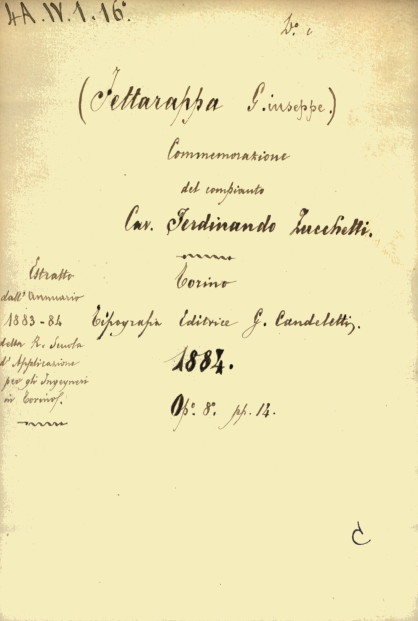 4A.IV.1.16°
(Fettarappa Giuseppe.)
Commemorazione
del compianto
Cav. Ferdinando Zucchetti.
Torino
Tipografia Editrice G. Candeletti,
1884.
Op°. 8°. pp. 14.
Estratto
dall'Annuario
1883-84
della R. Scuola
d'Applicazione
per gli Ingegneri
in Torino.